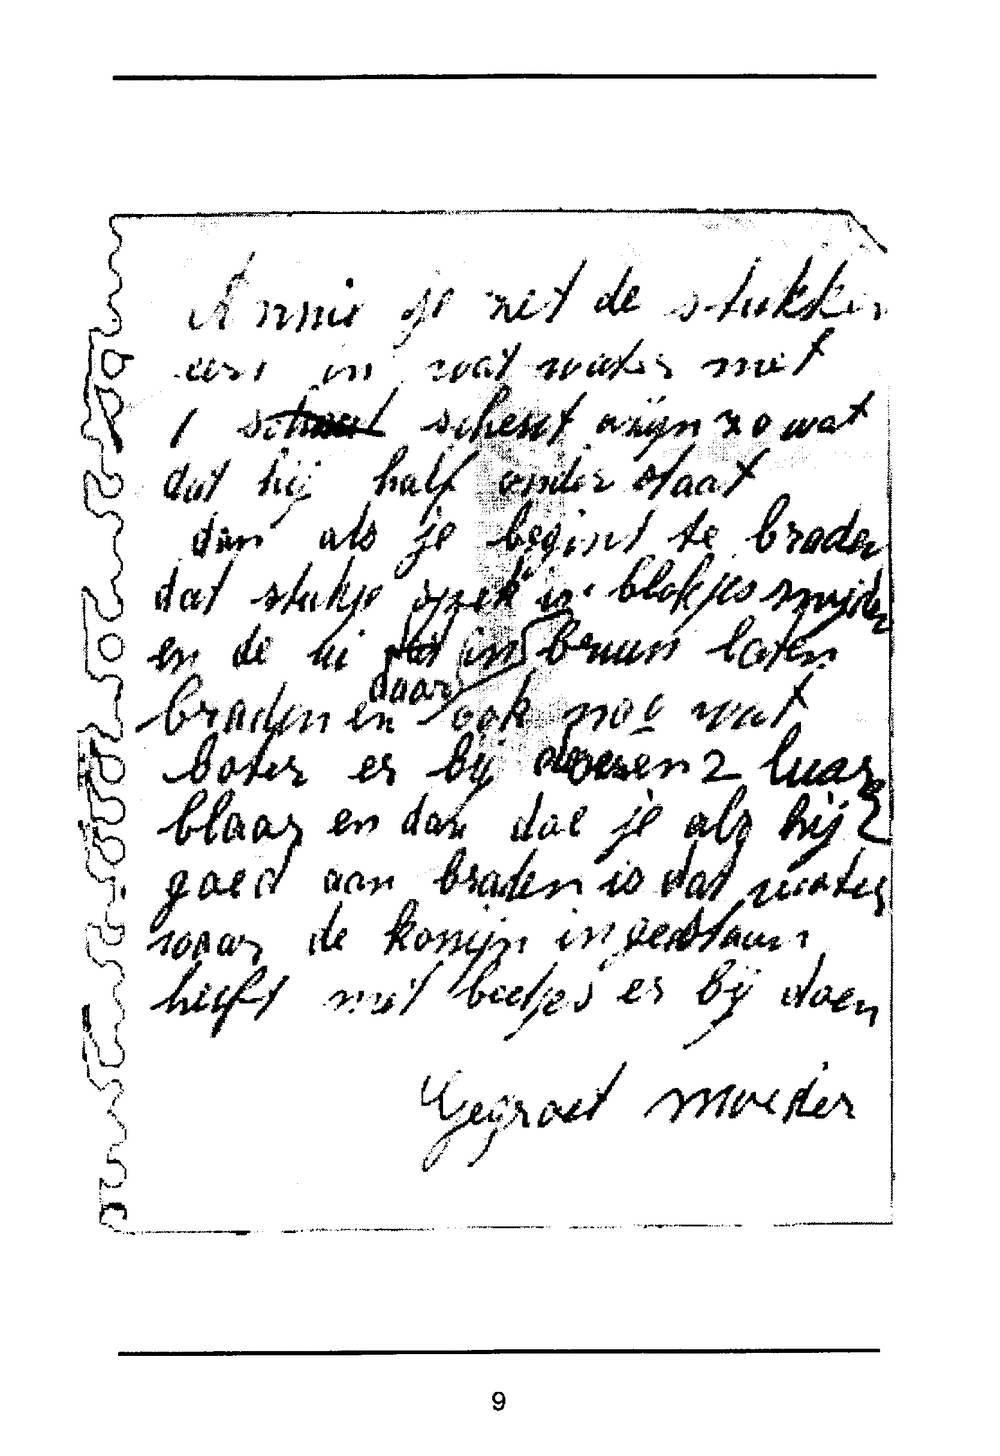 Annie je zet de stukken
eers in wat water met
1 scheut azijn zowat
dat hij half onder staat
dan als je begint te braden
dat stukje spek in blokjes snijden
en de ui in bruin laten
daar
braden en ook nog wat
boter er bij doen en 2 luar
blaar en dan doe je als hij
goed aan braden is dat water
waar de konijn in gestaan
heeft met beetjes er bij doen
Gegroet moeder
9